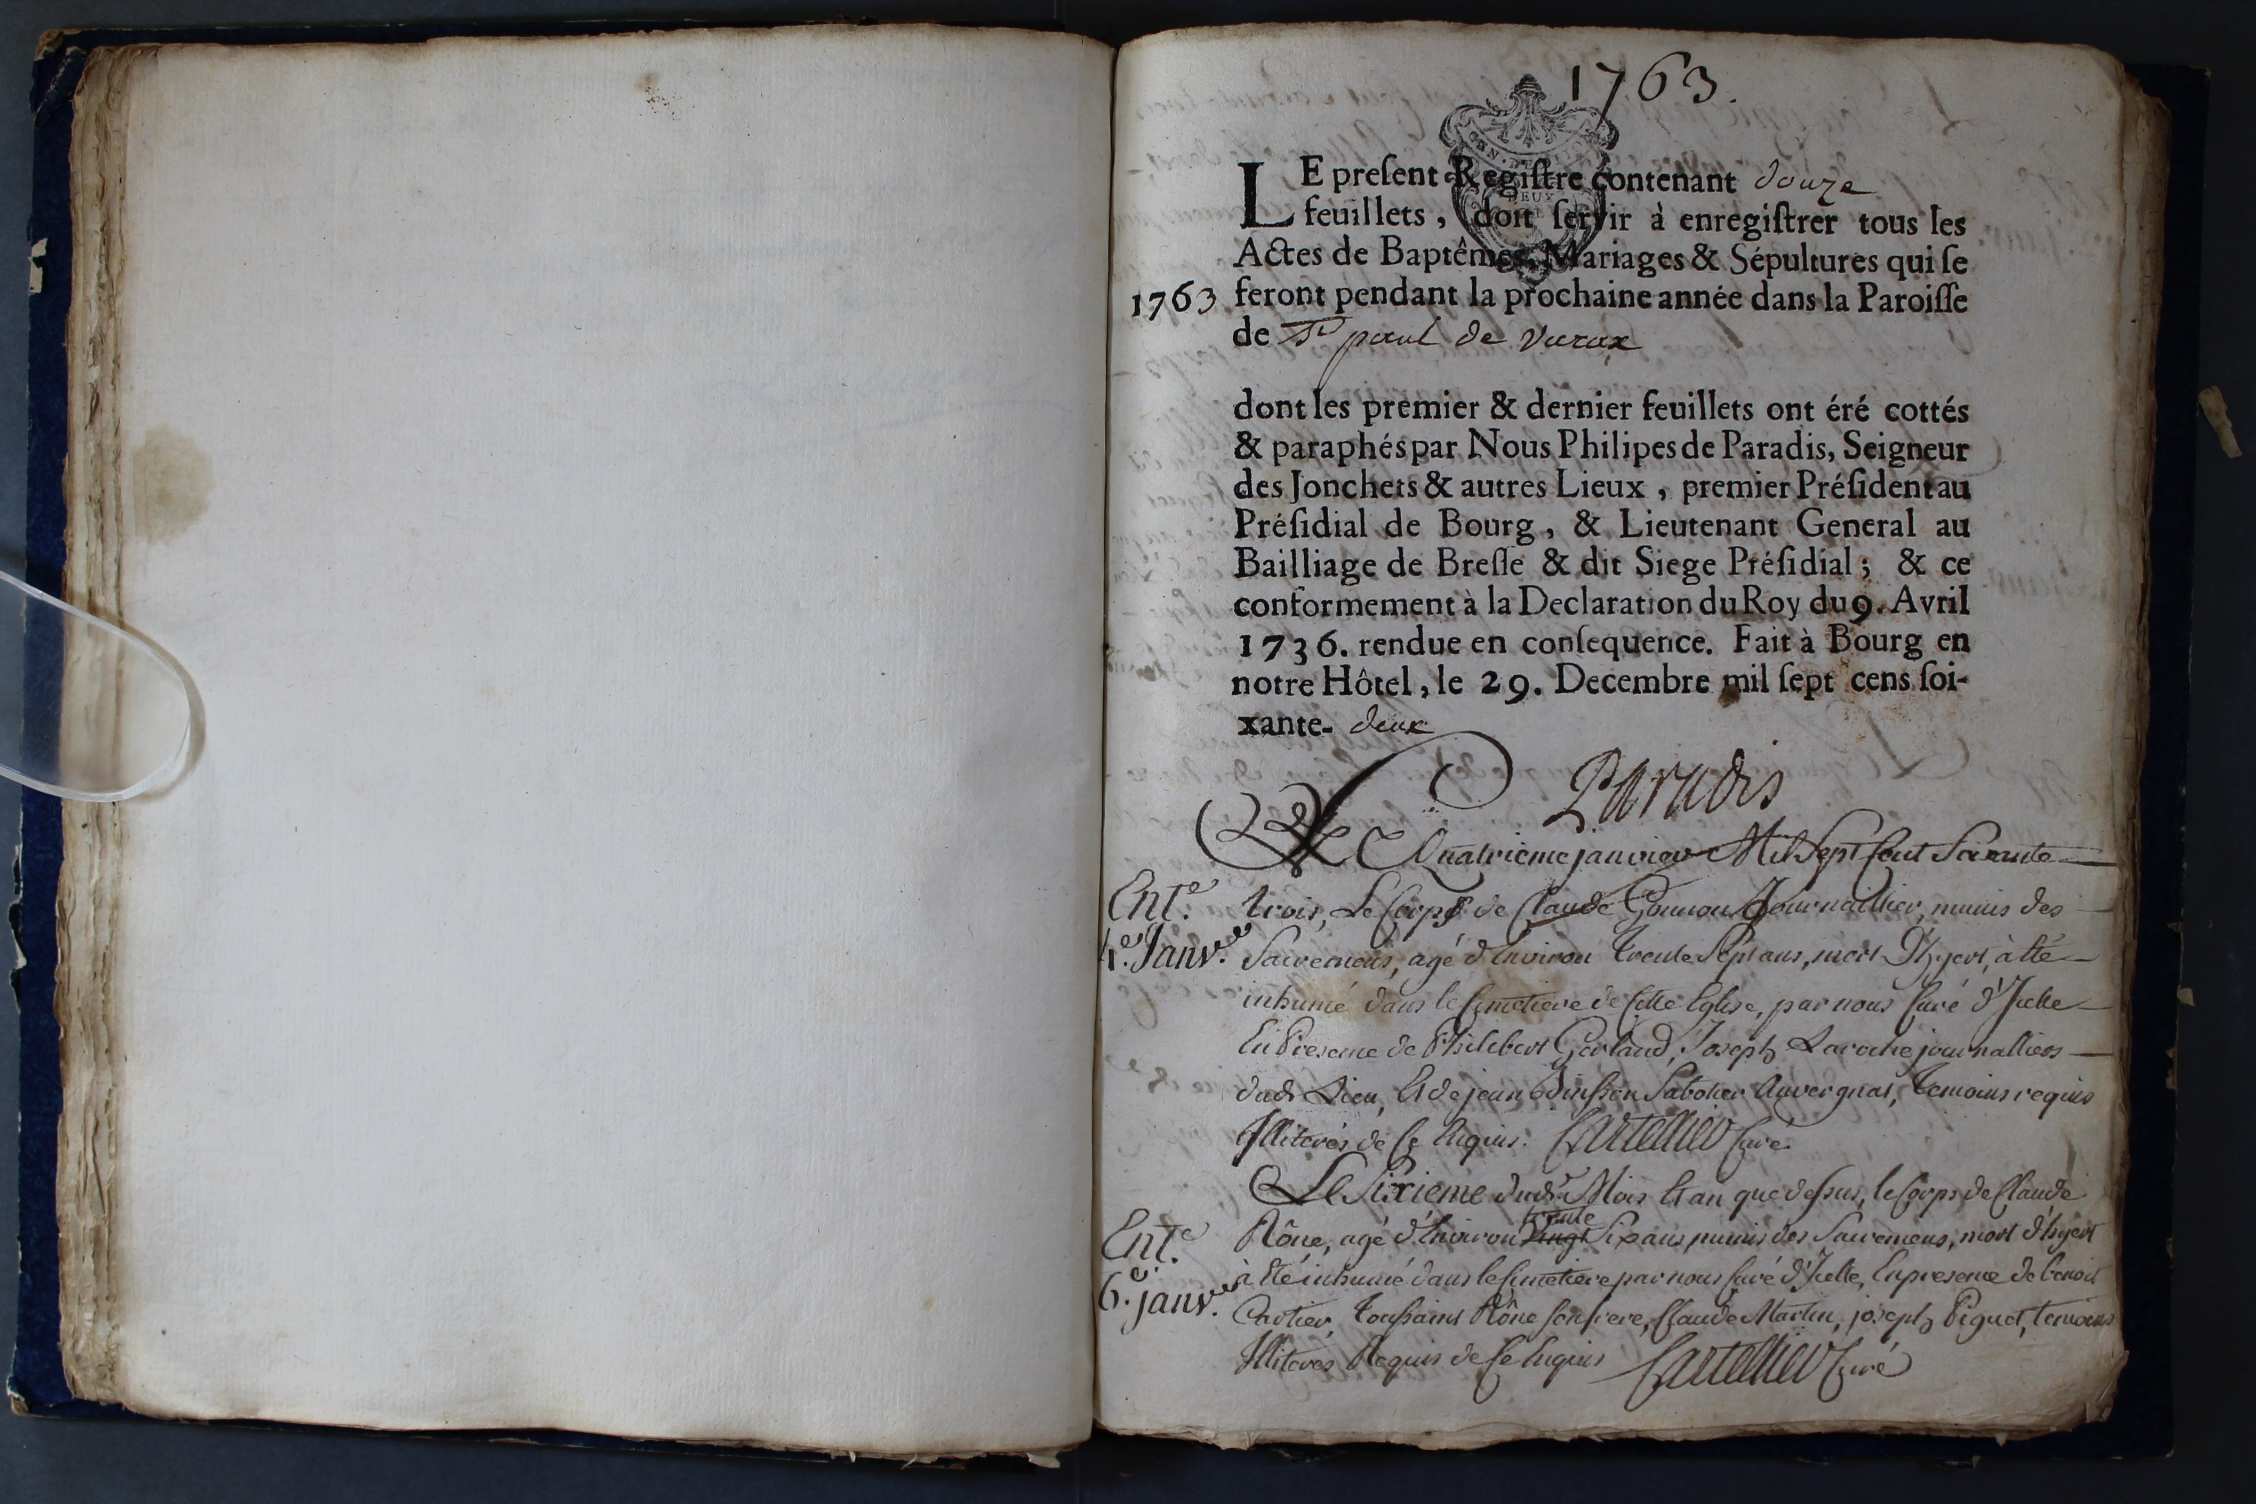 1763.
LE preſent Regiſtre contenant douze
feuillets, doit ſervir à enregiſtrer tous les
Actes de Baptêmes, Mariages & Sépultures qui ſe
1763 feront pendant la prochaine année dans la Paroiſſe
de St paul de Varax
dont les premier & dernier feuillets ont éré cottés
& paraphés par Nous Philipes de Paradis, Seigneur
des Jonchets & autres Lieux, premier Préſident au
Préſidial de Bourg, & Lieutenant General au
Bailliage de Breſſe & dit Siege Préſidial; & ce
conformement à la Declaration du Roy du 9. Avril
1736. rendue en conſequence. Fait à Bourg en
notre Hôtel, le 29. Decembre mil ſept cens ſoi-
xante- deux
Paradis
Le Quatrieme janvier Mil Sept Cent Soixante
Ent.e trois, Le Corps de Claude Gonnon Journaillier, munis des
4.e Janv.er Sacremens, agé d'Environ trente Sept ans, mort D'hyert, à Eté
inhumé dans le Cimetiere de Cette Eglise, par nous Curé d'Icelle
En Presence de Philibert Gerland, Joseph Laroche journalliers
dudt Lieu, Et de jean Sabotier Auvergnat, temoins requis
Illiterés de Ce Enquis. Cartellier Curé.
Le Sixieme dudt Mois Et an que dessus, le Corps de Claude
Ent.e Rône, agé d'Environ vingt trente Six ans, munis des Sacremens, mort d'hyert
à Eté inhumé dans le Cimetiere par nous Curé d'Icelle, En presence de benoit
6.e janv.er Cartier, Toussaint Rône Son frere, Claude Martin, joseph Piguet, temoins
Illiterés Requis de Ce Enquis Cartellier Curé